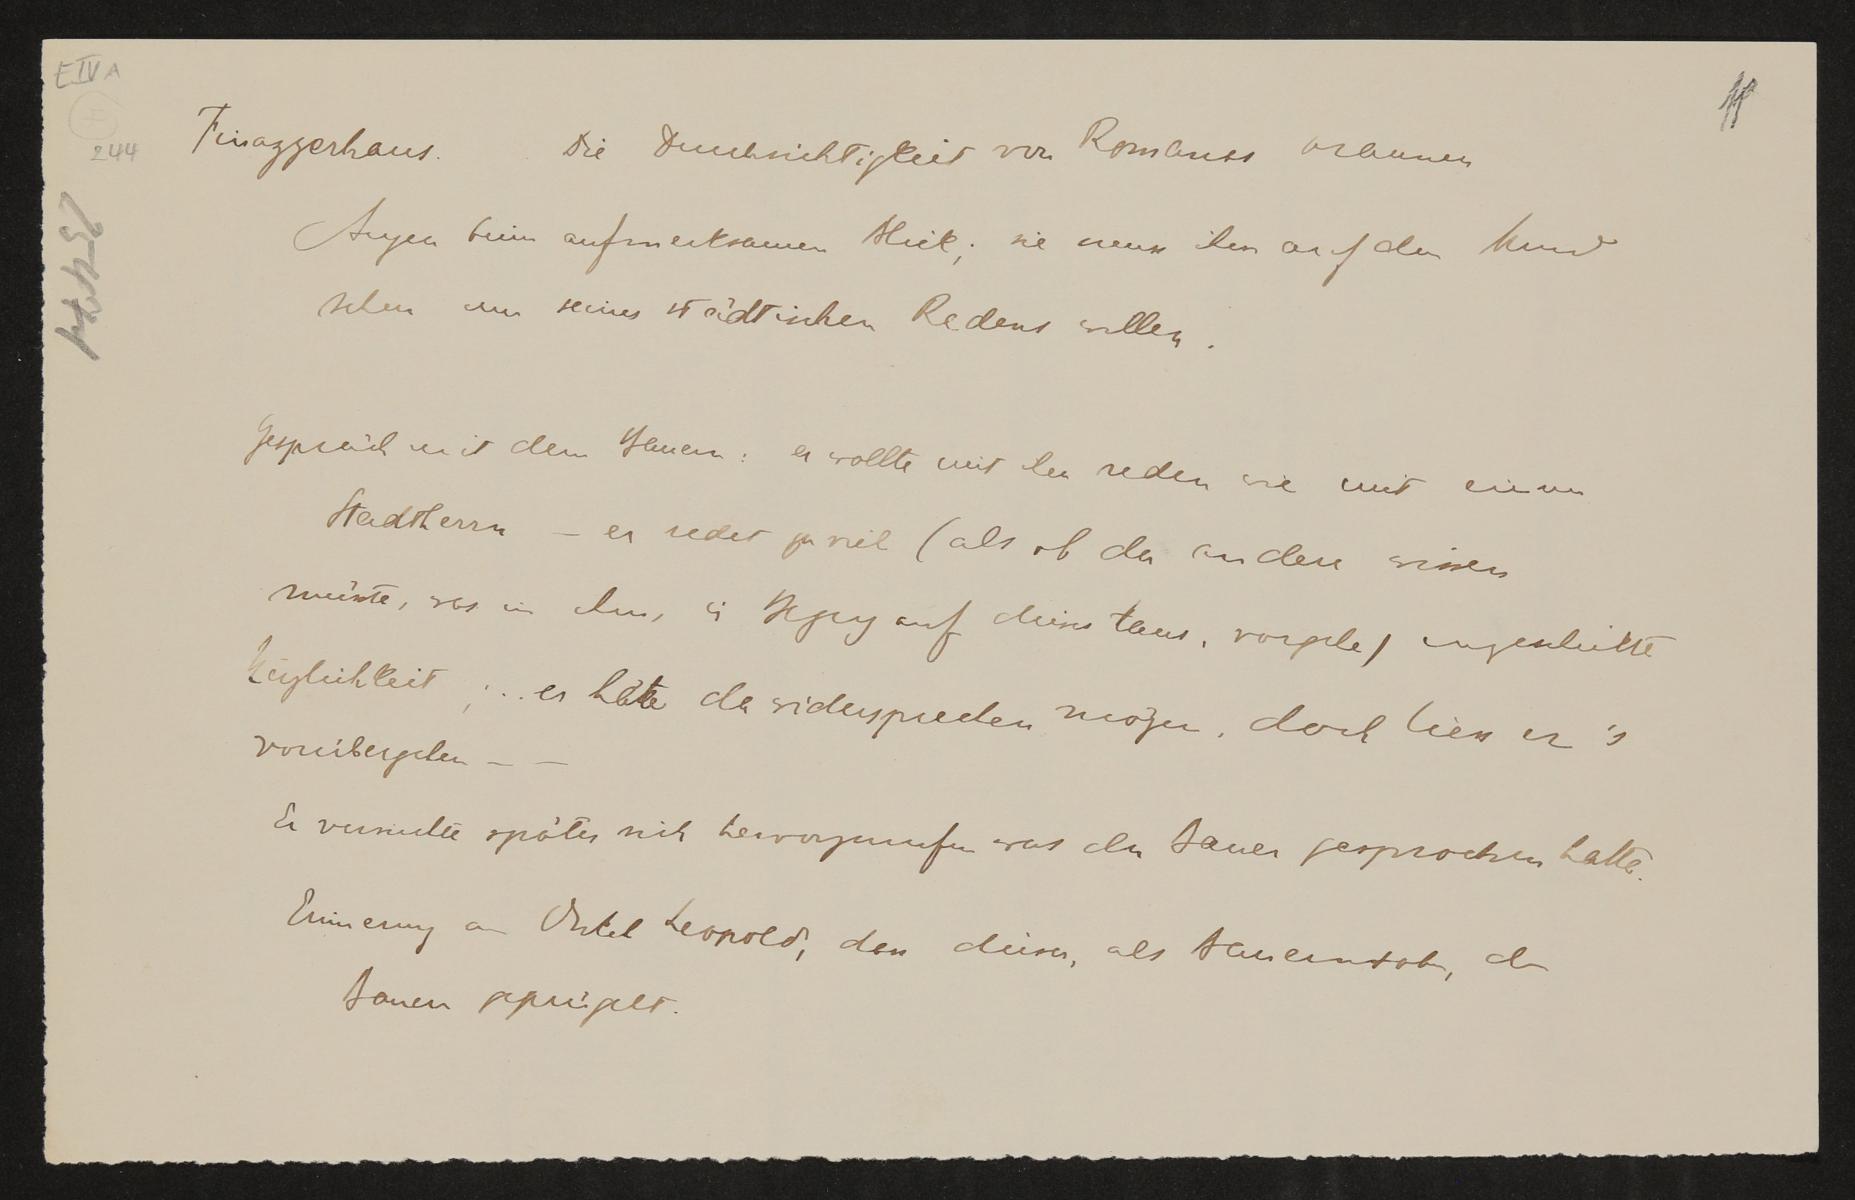 E IV A
4
244
Finazzerhaus. Die Durchsichtigkeit von Romanas braunen
Augen beim aufmerksamen Blick; sie muss ihm auf den Mund
sehen um seines städtischen Redens willen.
Gespräch mit dem Bauern: er wollte mit ihm reden wie mit einem
Stadtherrn – er redet zu viel (als ob der andere wissen
müsste, was in ihm, in Bezug auf dieses Haus, vorgehe) ungeschickte
; .. er hätte da widersprechen mögen, doch liess er 's
vorübergehen – –
Er versuchte später sich hervorzurufen was der Bauer gesprochen hatte.
Erinnerung an Onkel Leopold, dass dieser, als Bauernsohn, den
Bauern geprügelt.